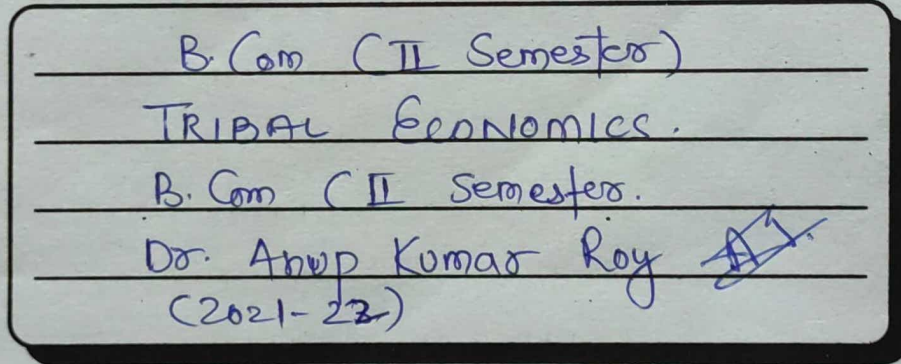 B. Com (II Semester)
TRIBAL ECONOMICS.
B. Com (II Semester.
Dr. Anup Kumar Roy
(2021-22)